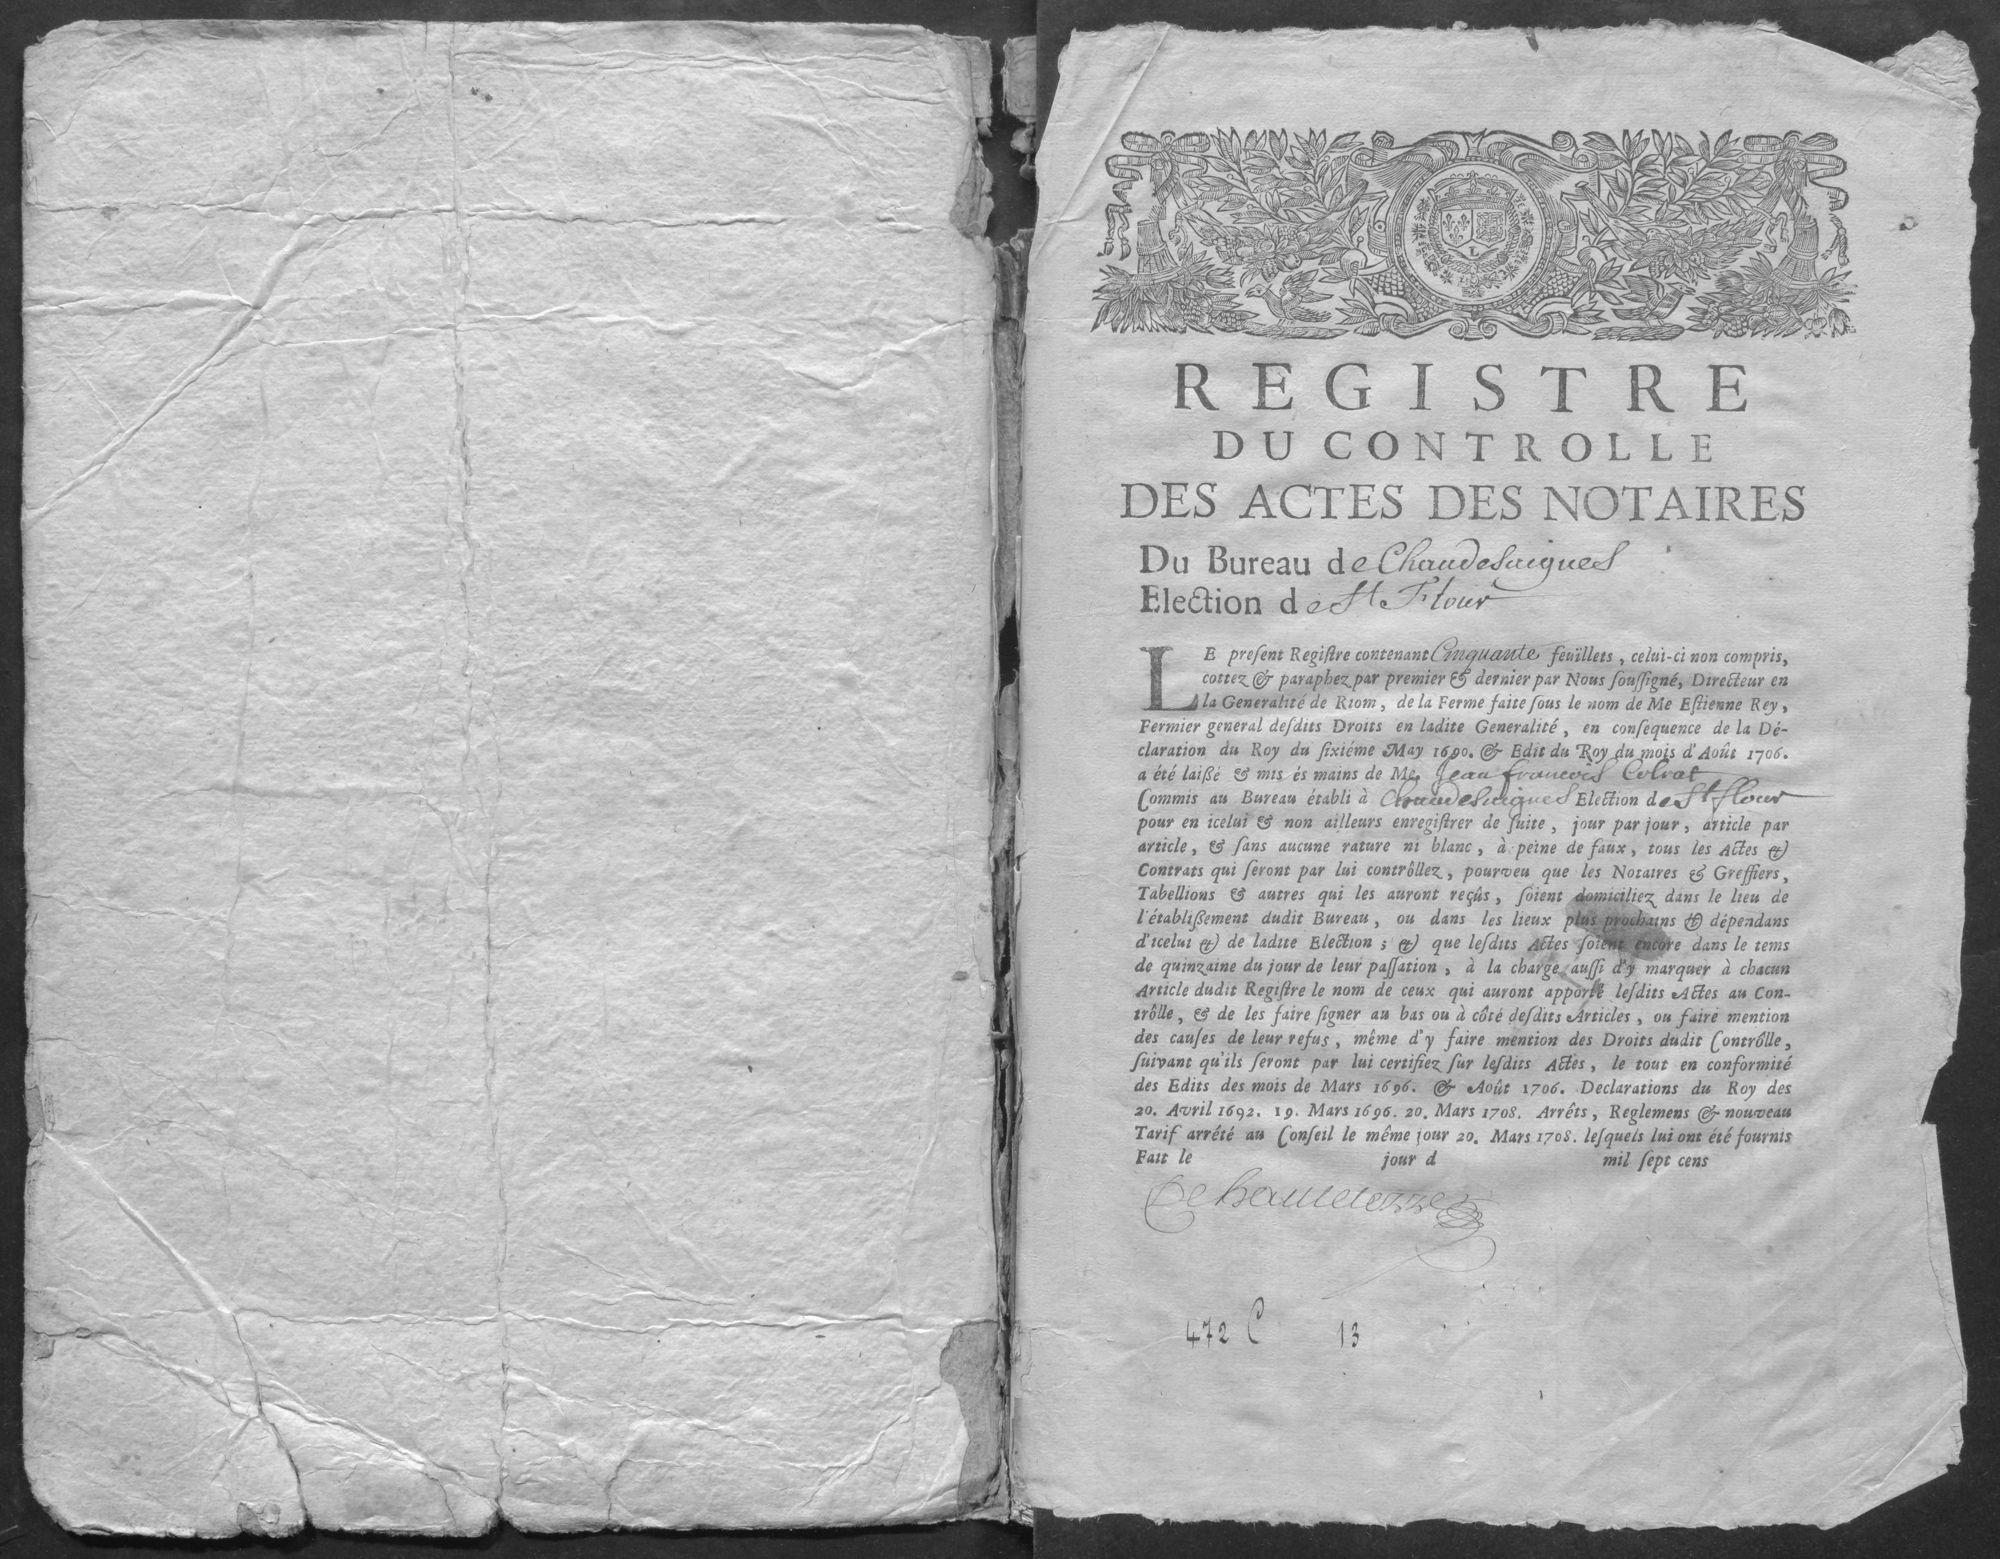 REGISTRE
DU CONTROLLE
DES ACTES DES NOTAIRES
Du Bureau de Chaudesaigues
Election de St Flour
LE preſent Regiſtre contenant Cinquante feuïllets, celui-ci non compris,
cottez & paraphez par premier & dernier par Nous ſouſſigné, Directeur en
la Generalité de Riom, de la Ferme faite ſous le nom de Me Eſtienne Rey,
Fermier general deſdits Droits en ladite Generalité, en conſequence de la Dé-
claration du Roy du ſixiéme May 1690. & Edit du Roy du mois d'Août 1706.
a été laißé & mis és mains de Me Jean francois Colrat
Commis au Bureau établi à Chaudesaigues Election de St flour
pour en icelui & non ailleurs enregiſtrer de ſuite, jour par jour, article par
article, & ſans aucune rature ni blanc, à peine de faux, tous les Actes &
Contrats qui ſeront par lui contrôllez, pourveu que les Notaires & Greffiers,
Tabellions & autres qui les auront reçûs, ſoient domiciliez dans le lieu de
l'établißement dudit Bureau, ou dans les lieux plus prochains & dépendans
d'icelui & de ladite Election; & que leſdits Actes ſoient encore dans le tems
de quinzaine du jour de leur paſſation, à la charge auſſi d'y marquer à chacun
Article dudit Regiſtre le nom de ceux qui auront apporté leſdits Actes au Con-
trôlle, & de les faire ſigner au bas ou à côté deſdits Articles, ou faire mention
des cauſes de leur refus, même d'y faire mention des Droits dudit Contrôlle,
ſuivant qu'ils ſeront par lui certifiez ſur leſdits Actes, le tout en conformité
des Edits des mois de Mars 1696. & Août 1706. Declarations du Roy des
20. Avril 1692. 19. Mars 1696. 20. Mars 1708. Arrêts, Reglemens & nouveau
Tarif arrété au Conſeil le même jour 20. Mars 1708. leſquels lui ont été fournis
Fait le jour d mil ſept cens
472 C 13